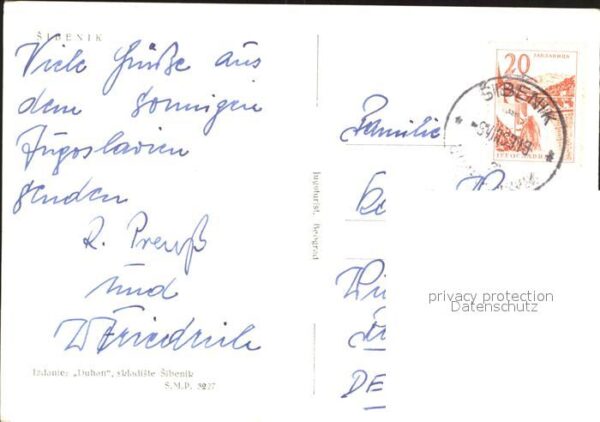 ŠIBENIK
Viele Grüße aus
dem sonnigen
Jugoslavien
senden
R. Preuß
und
W Friedrich
Izdanje: „Duhan", skladište Šibenik
Š.M.P. 3227
Jugoturist, Beograd
20
JABLANICA
ŠIBENIK
Familie
privacy protection
Datenschutz
DE